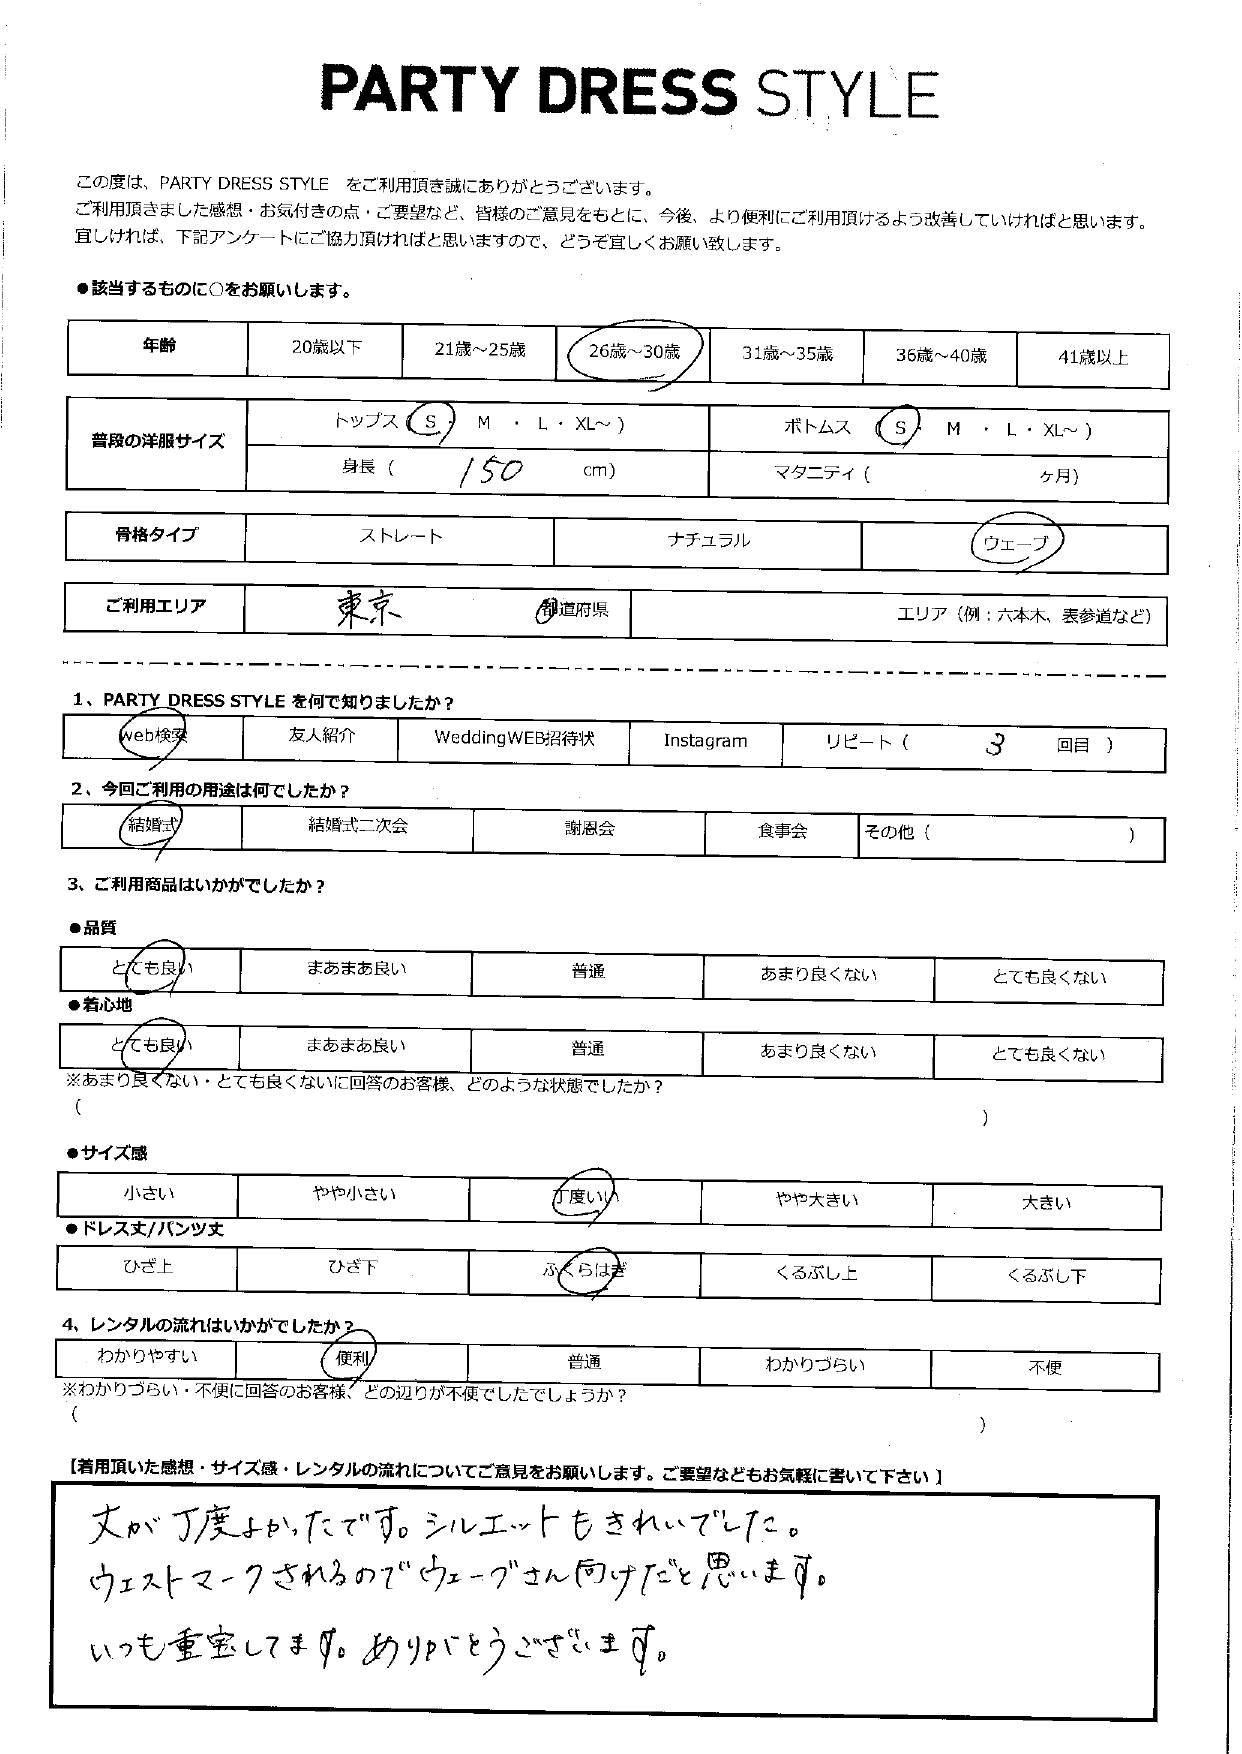 PARTY DRESS STYLE
この度は、PARTY DRESS STYLE をご利用頂き誠にありがとうございます。
ご利用頂きました感想・お気付きの点・ご要望など、皆様のご意見をもとに、今後、より便利にご利用頂けるよう改善していければと思います。
宜しければ、下記アンケートにご協力頂ければと思いますので、どうぞ宜しくお願い致します。
●該当するものに○をお願いします。
年齢 20歳以下 21歳～25歳 26歳～30歳 31歳～35歳 36歳～40歳 41歳以上
普段の洋服サイズ
トップス ( S ・ M ・ L ・ XL～ ) ボトムス ( S ・ M ・ L ・ XL～ )
身長 ( 150 cm) マタニティ ( ヶ月)
骨格タイプ ストレート ナチュラル ウェーブ
ご利用エリア 東京 都道府県 エリア（例：六本木、表参道など）
1、PARTY DRESS STYLE を何で知りましたか？
web検索 友人紹介 WeddingWEB招待状 Instagram リピート ( 3 回目 )
2、今回ご利用の用途は何でしたか？
結婚式 結婚式二次会 謝恩会 食事会 その他 ( )
3、ご利用商品はいかがでしたか？
●品質
とても良い まあまあ良い 普通 あまり良くない とても良くない
●着心地
とても良い まあまあ良い 普通 あまり良くない とても良くない
※あまり良くない・とても良くないに回答のお客様、どのような状態でしたか？
( )
●サイズ感
小さい やや小さい 丁度いい やや大きい 大きい
●ドレス丈/パンツ丈
ひざ上 ひざ下 ふくらはぎ くるぶし上 くるぶし下
4、レンタルの流れはいかがでしたか？
わかりやすい 便利 普通 わかりづらい 不便
※わかりづらい・不便に回答のお客様、どの辺りが不便でしたでしょうか？
( )
【着用頂いた感想・サイズ感・レンタルの流れについてご意見をお願いします。ご要望などもお気軽に書いて下さい 】
丈が丁度よかったです。シルエットもきれいでした。
ウエストマークされるのでウェーブさん向けだと思います。
いつも重宝してます。ありがとうございます。